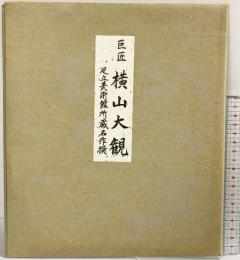 巨匠 横山大観
足立美術館所蔵名作撰